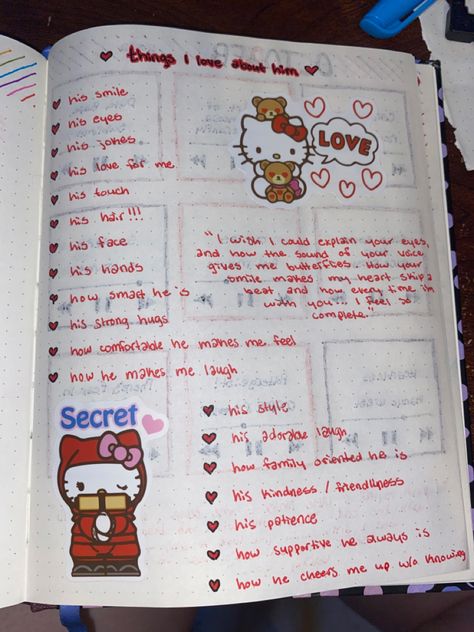 things I love about him
his smile
his eyes
his jokes
his love for me
his touch
his hair!!!
his face
his hands
how smart he is
his strong hugs
how comfortable he makes me feel
how he makes me laugh
LOVE
"I wish I could explain your eyes,
and how the sound of your voice
gives me butterflies. How your
smile makes my heart skip a
beat and how every time im
with you, I feel so
complete."
Secret
his style
his adorable laugh
how family oriented he is
his kindness / friendliness
his patience
how supportive he always is
how he cheers me up w/o knowing